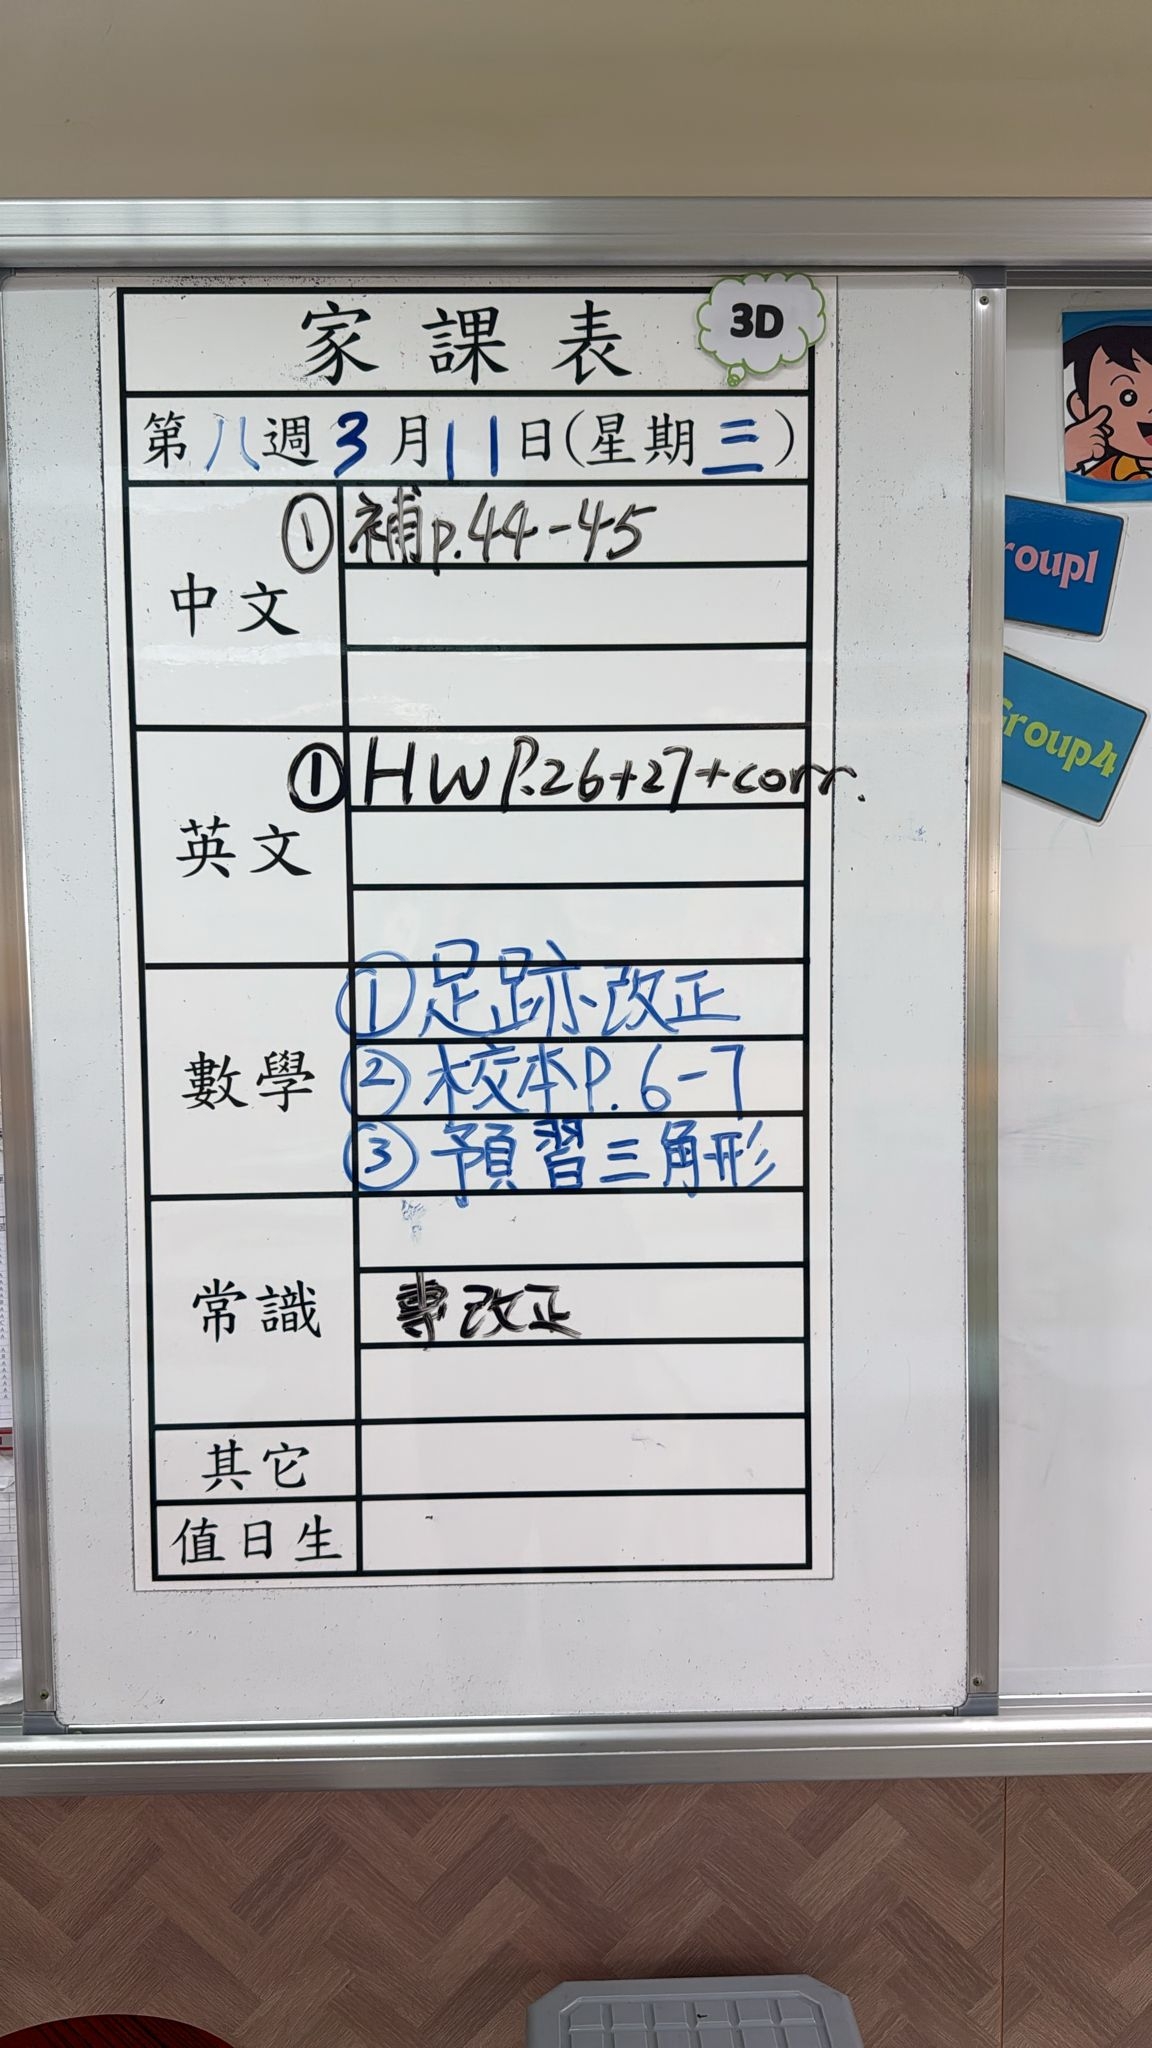 家課表
3D
第八週3月11日(星期三)
中文
① 補p.44-45
英文
① HW P.26+27+corr.
數學
① 足跡改正
② 校本P.6-7
③ 預習三角形
常識
專改正
其它
值日生
roup1
Group4